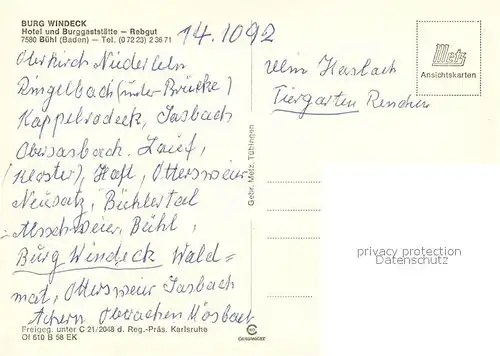 BURG WINDECK
Hotel und Burggaststätte — Rebgut
7580 Bühl (Baden) — Tel. (0 72 23) 2 36 71
14.10 92
Oberkirch Niederlehn
Ringelbach (unter Brücke)
Kappelrodeck, Sasbach
Obersasbach, Lauf,
(Kloster), Haft, Ottersweier
Neusatz, Bühlertal
Altschweier, Bühl,
Burg Windeck Wald=
mat, Ottersweier Sasbach
Achern Oberachen Mösbach
Freigeg. unter C 21/2048 d. Reg.-Präs. Karlsruhe
Of 610 B 58 EK
Gebr. Metz, Tübingen
Ulm Haslach
Tiergarten Renchen
Metz
Ansichtskarten
privacy protection
Datenschutz